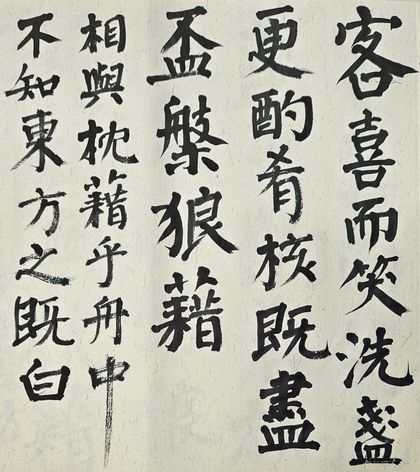 客喜而笑洗盞
更酌肴核既盡
盃槃狼藉
相與枕藉乎舟中
不知東方之既白